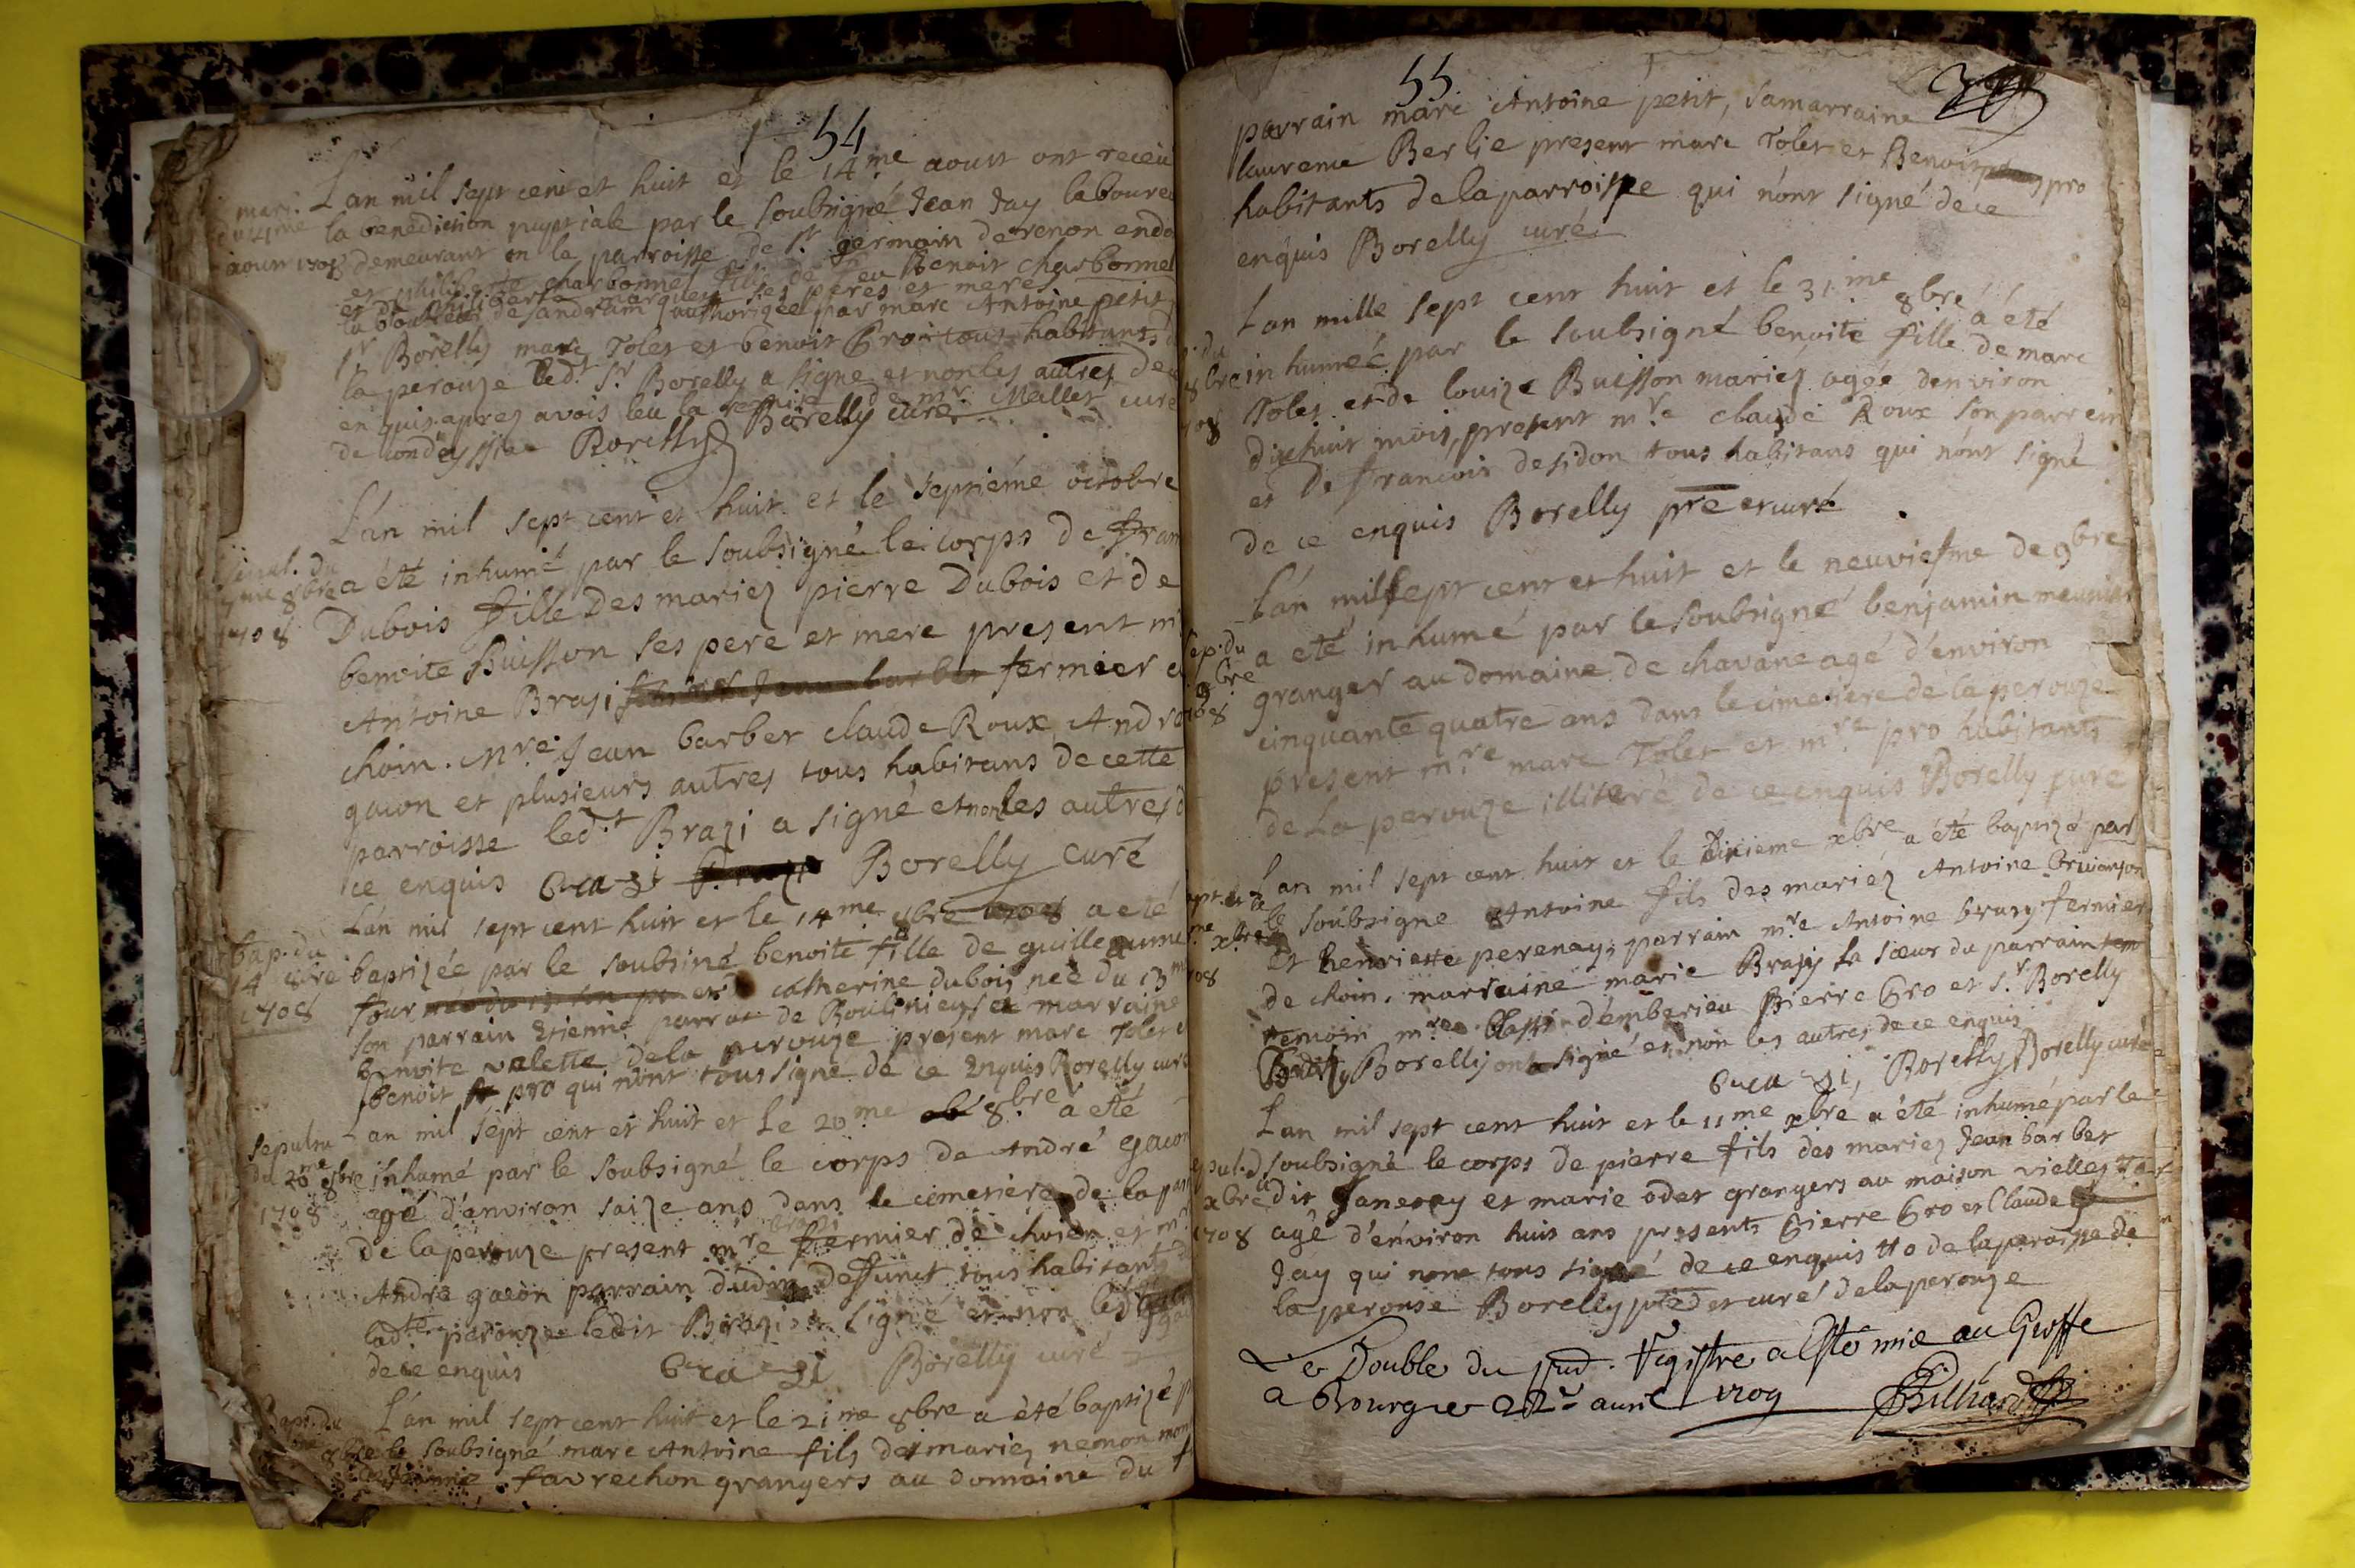 54
mari.
du 14me
aoust 1708
Lan mil sept cent et huit et le 14me aoust ont receu
la benediction nuptiale par le soubsigné Jean Jay laboureu
demeurant en la parroisse de st germain derenon
et philiberte charbonnel fille de feu Benoit charbonnel
et de philiberte marquez ses peres et meres
de sandram authorizeé par marc Antoine petit
sr Borelly marc Tolet et benoit Gro tous habitants d
la perouze led.t Sr Borelly a signé et non les autres de ce
enquis apres avois leu la de mr. Mallet curé
de condeyssia Borelly Borelly curé
sepul. du
7me 8bre
1708
Lán mil sept cent et huit et le septiéme octobre
a été inhumé par le soubsigné le corps de fran
Dubois fille des mariez pierre Dubois et de
benoite Buisson ses pere et mere present m
Antoine Brasi fermier
choin. Mre. Jean barber claude Roux, Andre
gacon et plusieurs autres tous habitans de cette
parroisse led.t Brazi a signé et non les autres d
ce enquis Brazi Borelly curé
bap. du
14 8bre
1708
Lán mil sept cent huit et le 14me 8bre 1708 a eté
baptizée par le soubsiné benoite fille de guilleaume
four et catherine dubois née du 13m
son parrain Etienne parrat de Boulinieu sa marraine
benoite valette dela perouze present marc Tolet e
benoit pro qui nónt tous signé de ce enquis Borelly curé
sepultu
du 20me 8bre
1708
Lan mil sept cent et huit et Le 20me 8bre a été
inhumé par le soubsigné le corps de André gacon
agé d'environ saize ans dans le cimetiére de la
de la perouze present mre brazi fermier de choien et mr
Andre gacon parrain dudit deffunct tous habitants
ladte perouze ledit Brazi a signé et non led
de ce enquis Brazi Borelly curé
Bap. du
8bre
Lán mil sept cent huit et le 21me 8bre a été baptizé p
le soubsigné marc Antoine fils des mariez nemon mon
favrechon grangers au domaine du f
55
parrain marc Antoine petit, samarraine
laurence Berlie present marc Tolet et Benoit pro
habitants de la parroisse qui nónt signé de ce
enquis Borelly curé
du
8bre
708
Lan mille sept cent huit et le 31me 8bre á été
inhumeé par le soubsigné benoite fille de marc
Tolet et de louize Buisson mariez agée denviron
dixhuit mois, present mre claude Roux son parrein
et De francois desidon tous habitans qui nónt signé
de ce enquis Borelly pre et curé
sep. du
9bre
1708
Lán mil sept cent et huit et le neuviesme de 9bre
a eté inhumé par le soubsigné benjamin meunier
granger au domaine de chavane agé d'environ
cinquante quatre ans dans le cimetiere de la perouze
present mre marc Tolet et mre pro habitants
de La perouze illiteré de ce enquis Borelly curé
xbre
708
Lan mil sept cent huit et le dixieme xbre a été baptizé par
le soubsigne Antoine fils des mariez Antoine brivanson
et henrieste perenay, parrain mre Antoine brazy fermier
de choin. marraine marie Brazy la sœur du parrain
temoin mre d'emberieu Pierre Gro et sr. Borelly
Borelly ont signé et non les autres de ce enquis
Brazi, Borelly Borelly curé
sepul. d
xbre
1708
Lan mil sept cent huit et le 11me xbre a été inhumé par le
soubsigné le corps de pierre fils des mariez Jean barber
dit Janeray et marie odet grangers au maison vielles
agé d'énviron huit ans presents Pierre Gro et Claude
Jay qui nont tous signé de ce enquis de la paroisse de
la perouse Borelly ptre et curé de la perouze
Le Double du pnt. Registre a esté mis au Greffe
a Bourg ce 22e auril 1709 Billiard